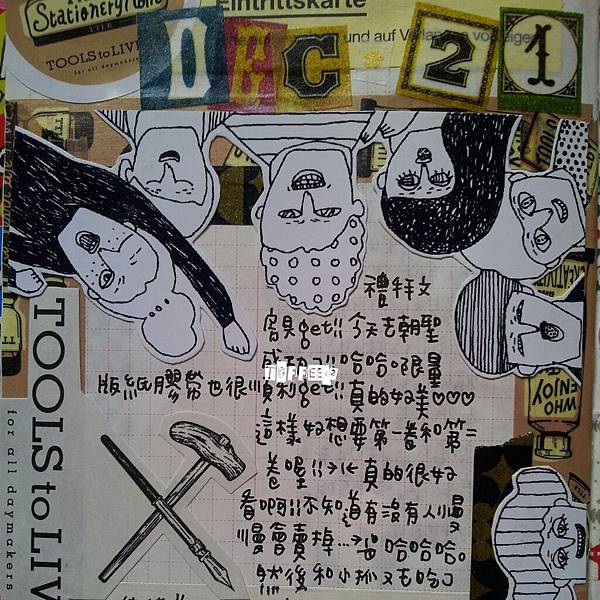 Stationeryholic
TOOLS to LIVE
for all daymakers
Eintrittskarte
und auf Verlangen vorzeigen
DEC 21
禮拜文
get!! 今天去朝聖
成功了!! 哈哈哈 限量
TIFFEE
版紙膠帶也很順利get!! 真的好美♡♡♡
這樣好想要第一卷和第二
卷喔!! >I< 真的很好
看啊!! 不知道有沒有人慢
慢會賣掉...> 哈哈哈。
然後和小
TOOLS to LIV
for all daymakers
WHO
ENJOY
CREATIVITY